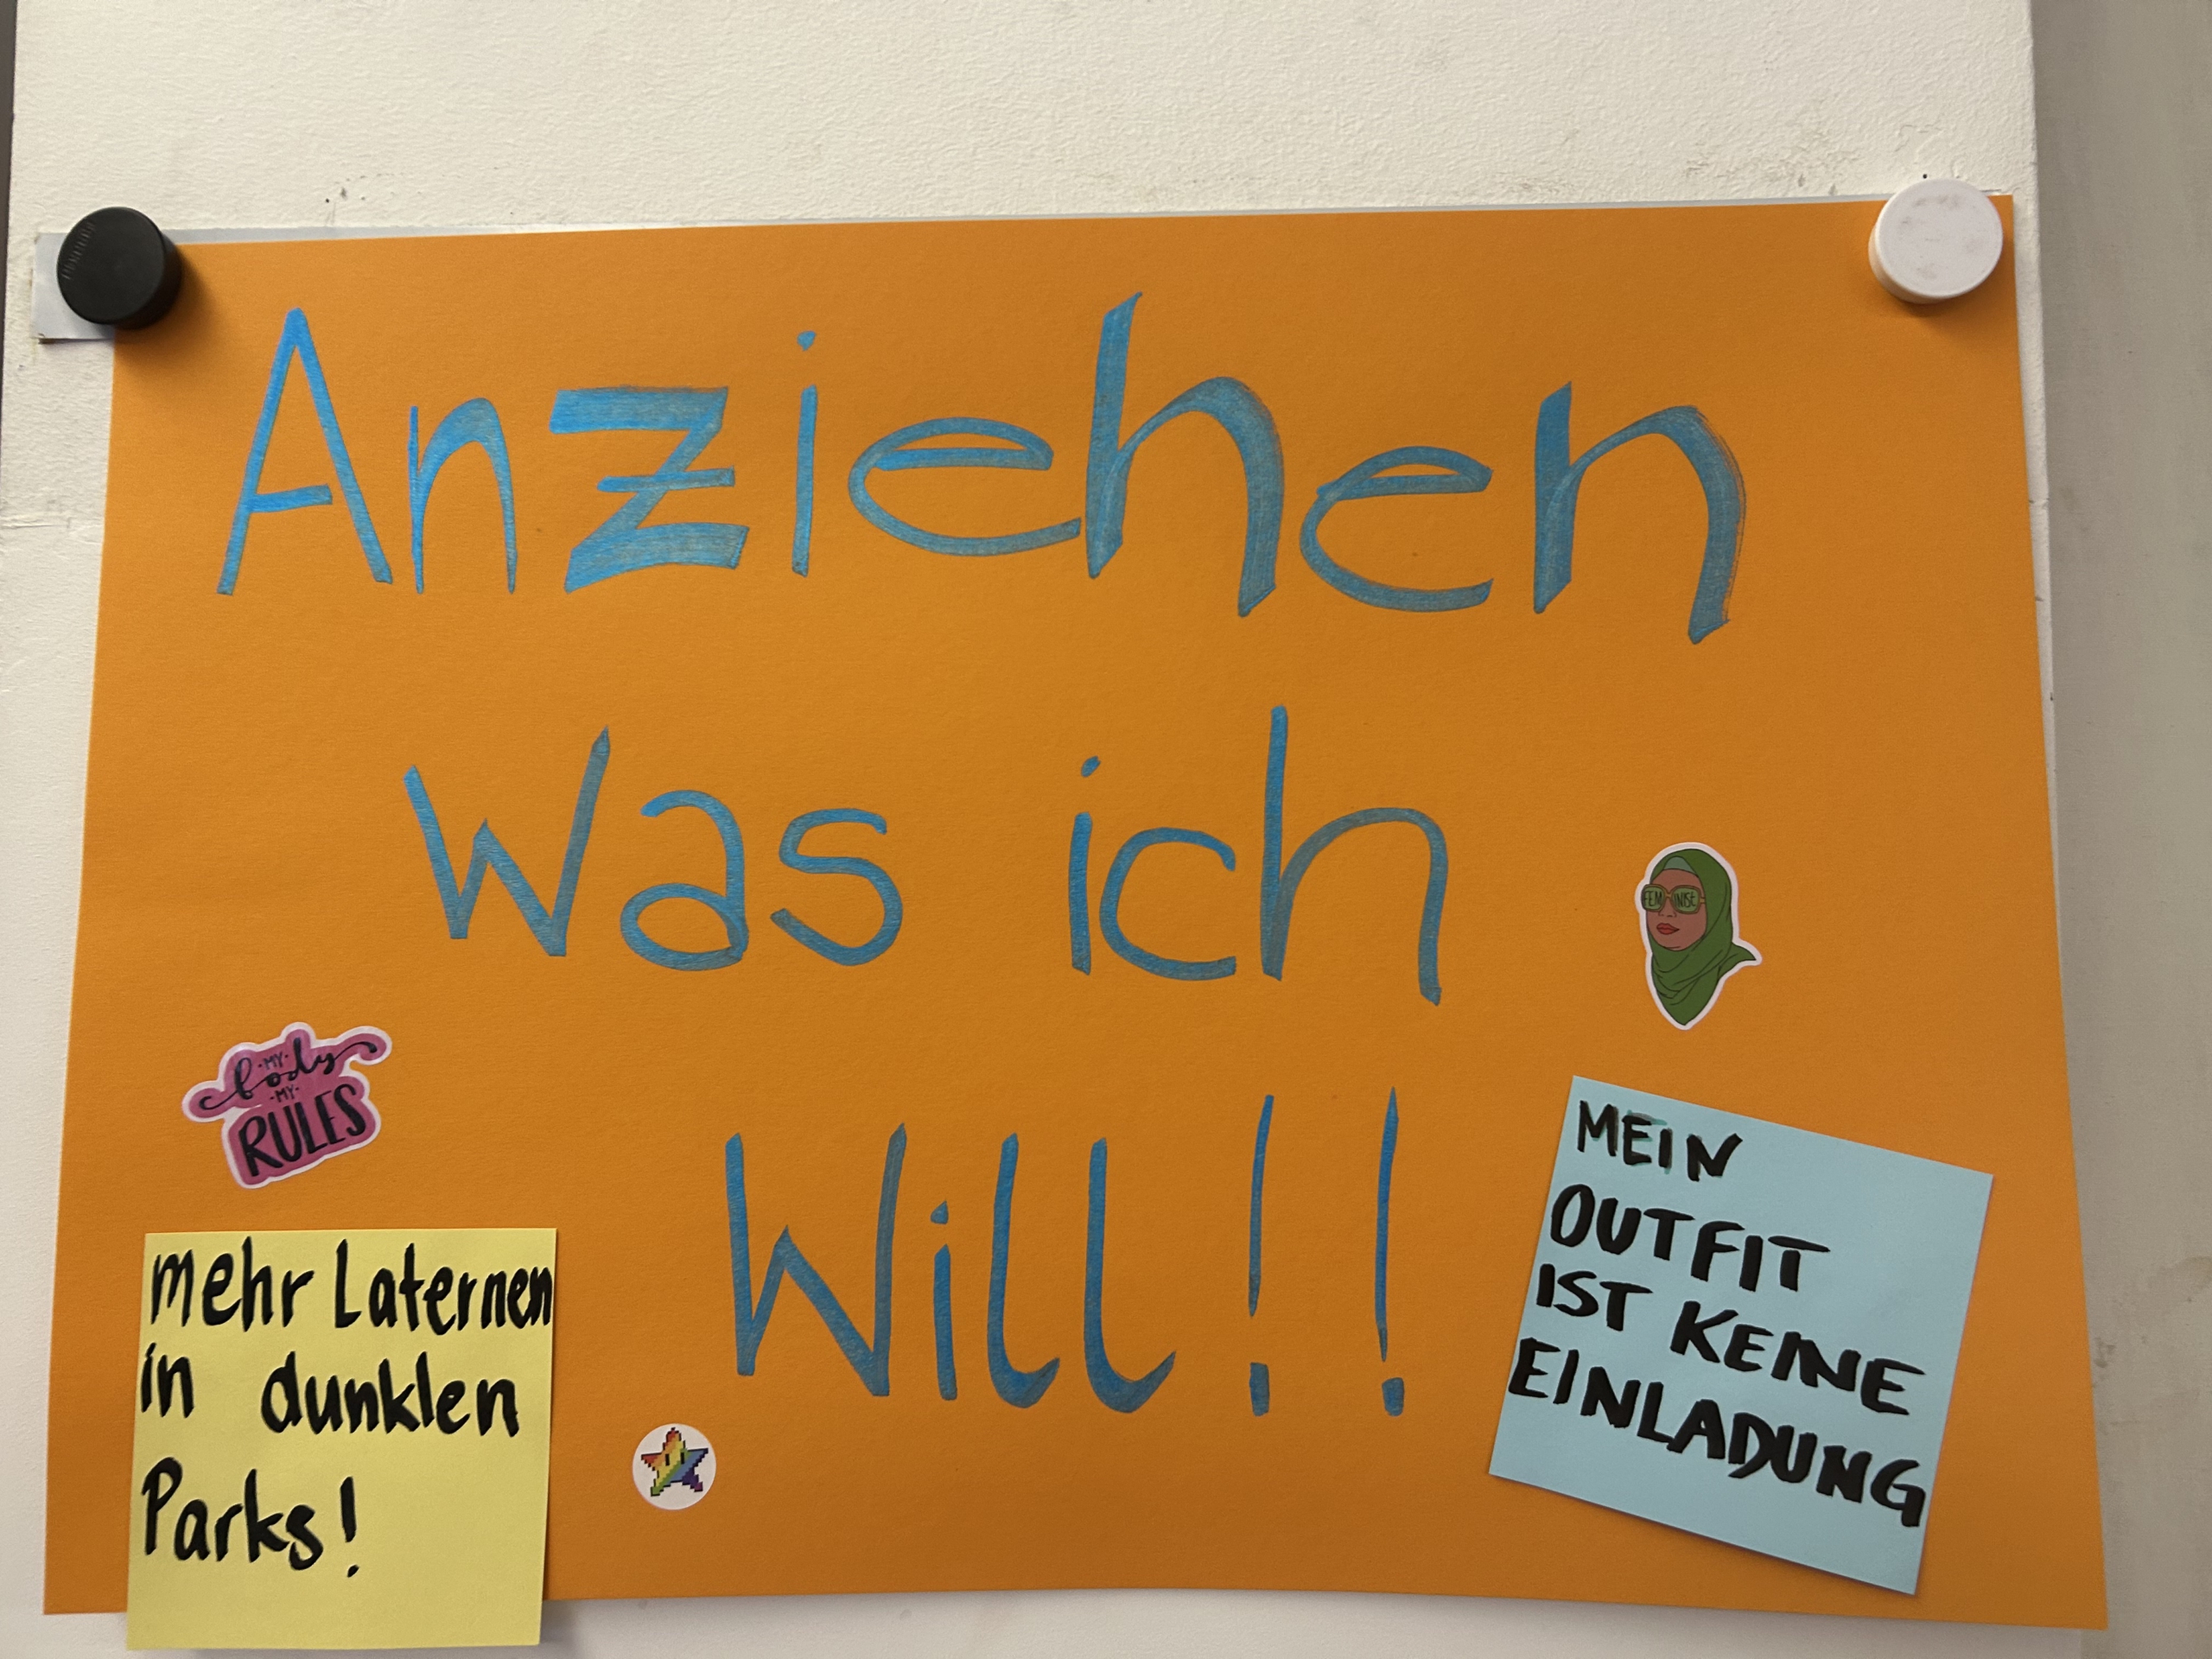 Anziehen
Was ich
Will!!
FEMINIST
·MY·
body
·MY·
RULES
mehr Laternen
in dunklen
Parks!
MEIN
OUTFIT
IST KEINE
EINLADUNG